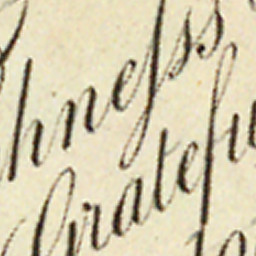 hneſs
Gratefu